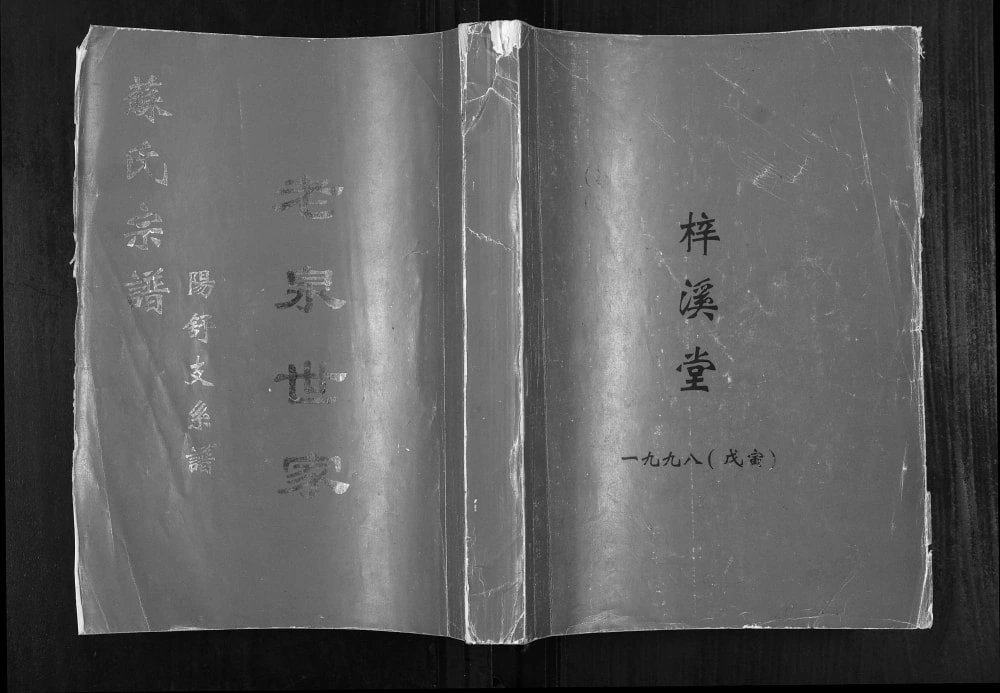 蘇氏宗譜
陽舒支系譜
老泉世家
梓溪堂
一九九八(戊寅)